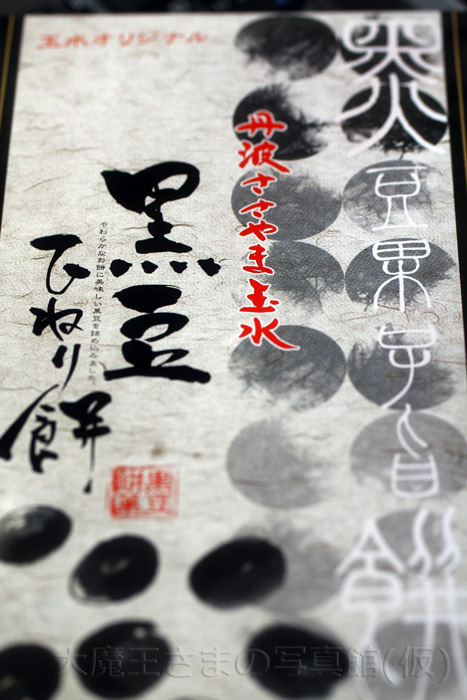 玉水オリジナル
丹波ささやま玉水
黒豆
やわらかなお餅に美味しい黒豆を詰め込みました。
ひねり餅
大魔王さまの写真館(仮)